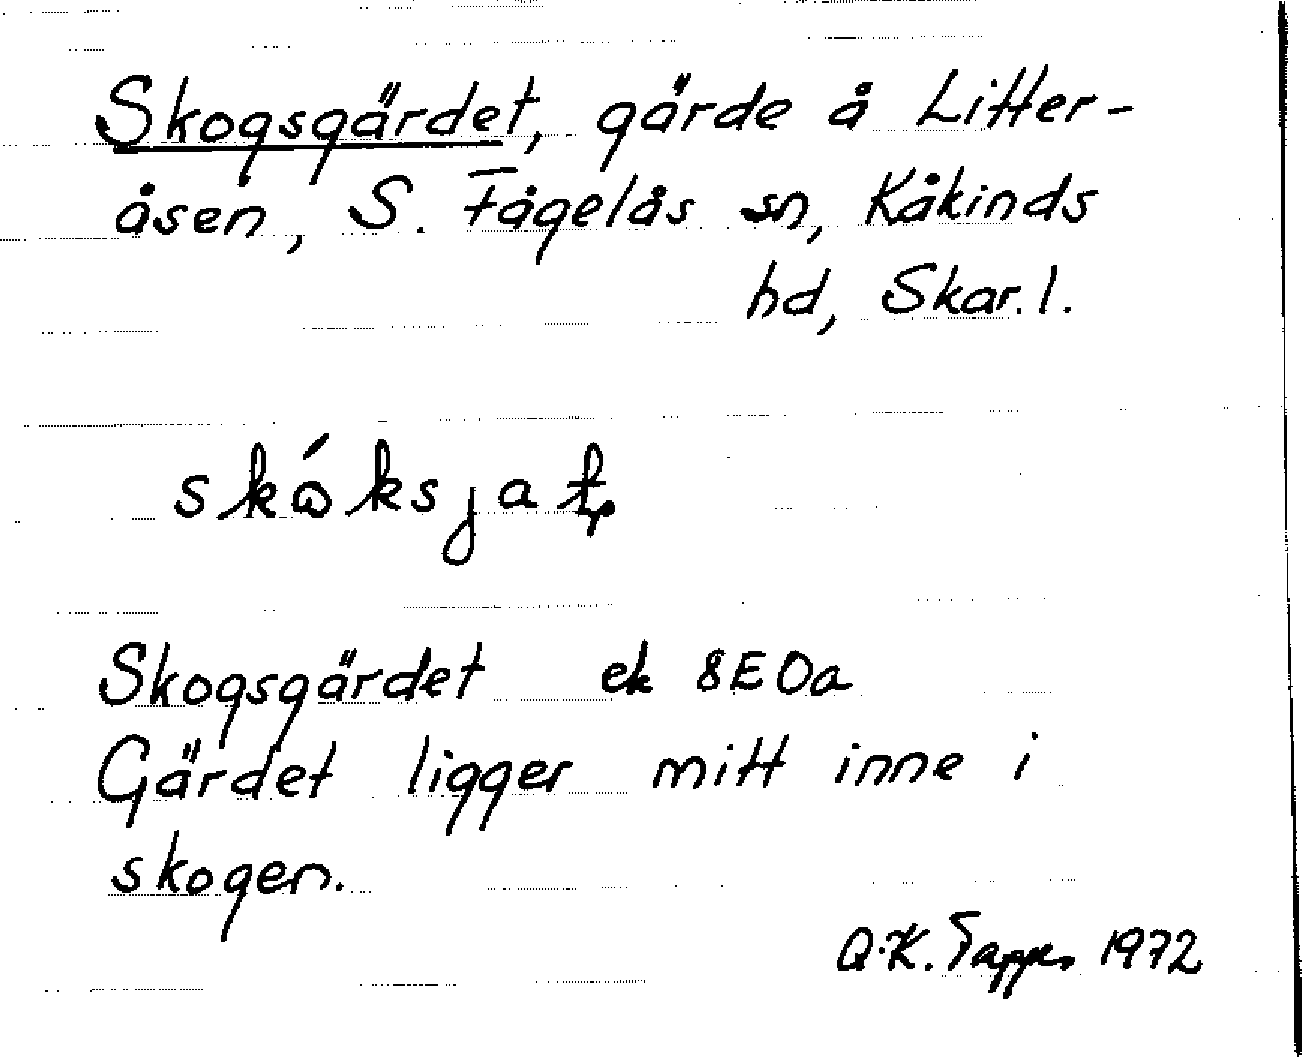 Skogsgärdet, gärde å Litter-
åsen, S. Fågelås sn, Kåkinds
hd, Skar. l.
Skogsgärdet ek 8E0a
Gärdet ligger mitt inne i
skogen.
1972